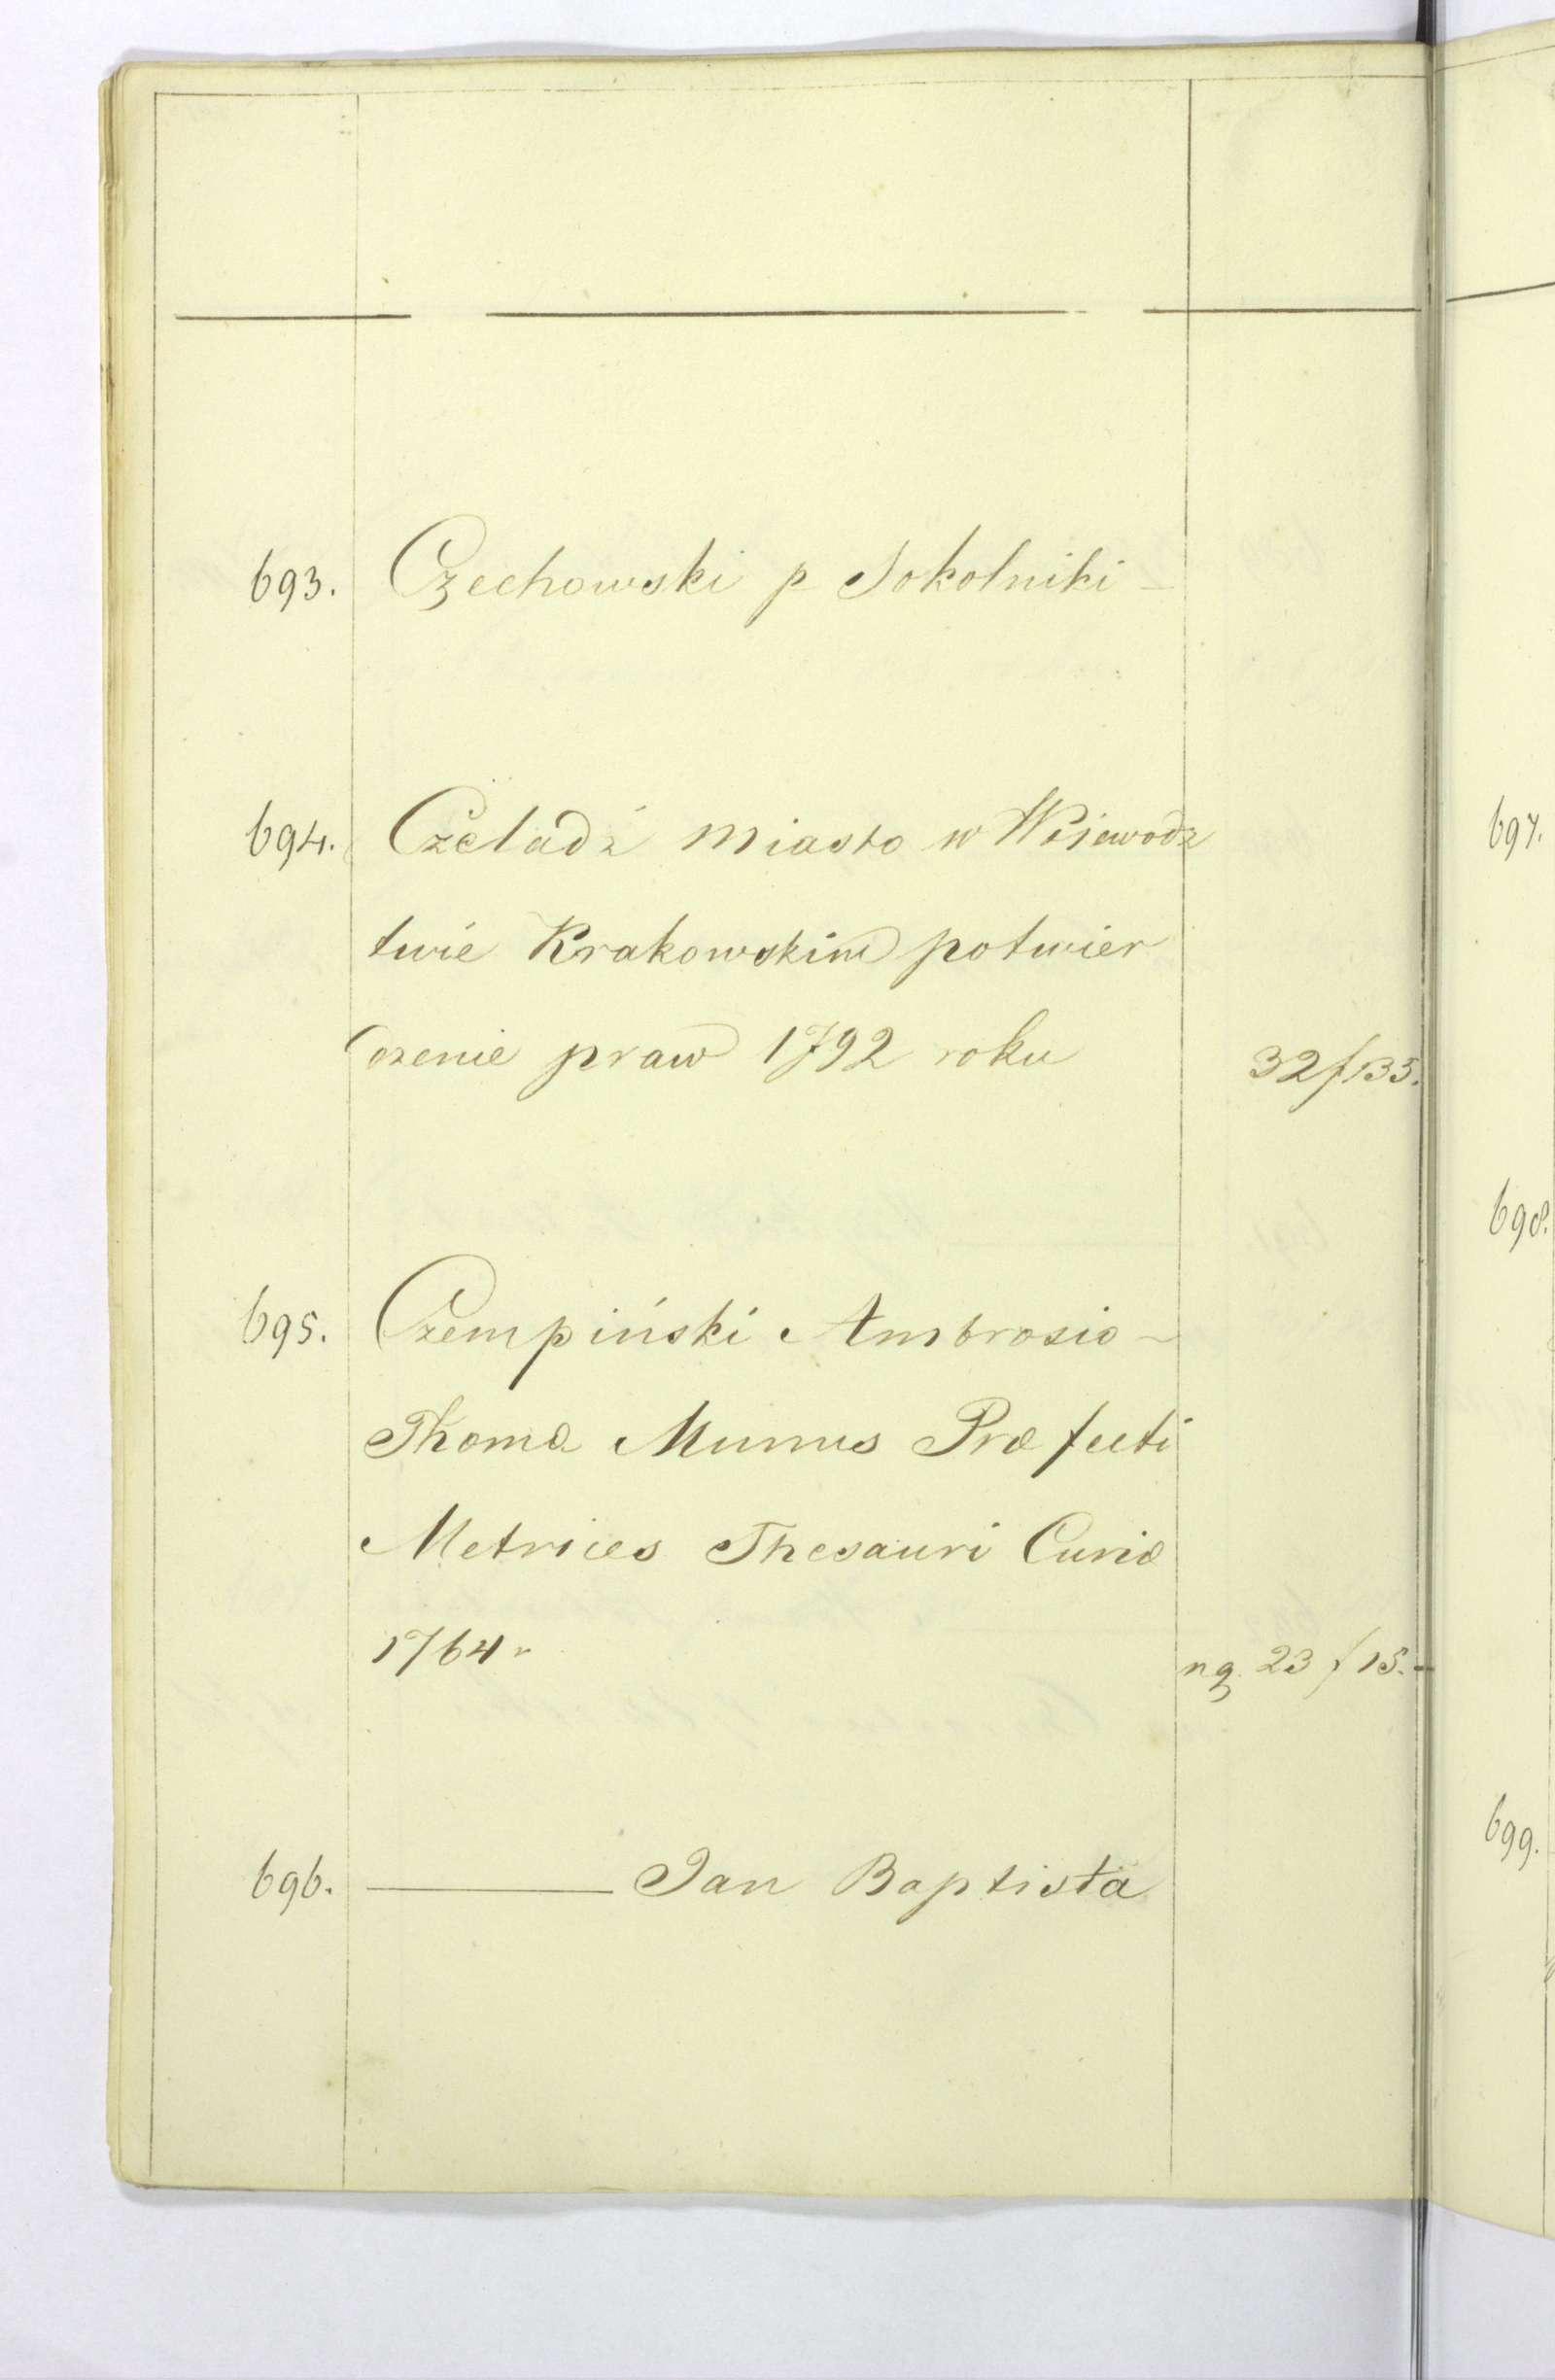 693. Czechowski p Sokolniki –
694. Czeladź miasto w Wojewodz
twie Krakowskim potwier
dzenie praw 1792 roku 32 f 135.
695. Czempiński Ambrosio –
Thoma Munus Præfecti
Metrices Thesauri Curiæ
1764 r ng. 23 f 15. –
696. ——— Jan Baptista
697.
698.
699.